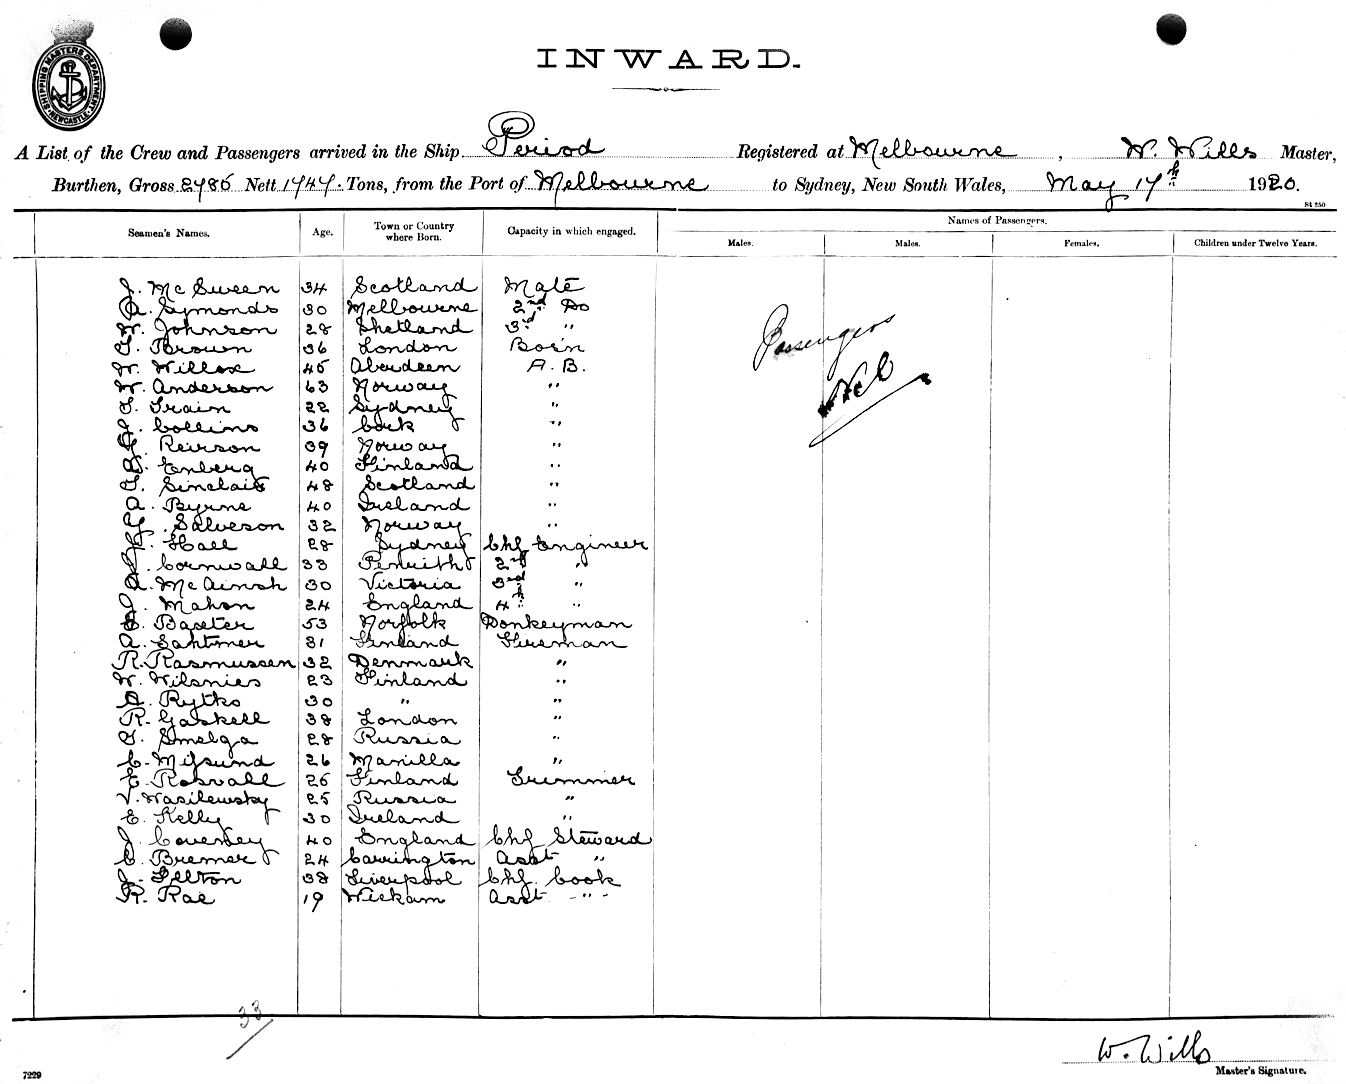 SHIPPING MASTERS DEPARTMENT
NEWCASTLE
INWARD.
A List of the Crew and Passengers arrived in the Ship Period Registered at Melbourne, W. Wills Master,
Burthen, Gross 2486 Nett 1747 Tons, from the Port of Melbourne to Sydney, New South Wales, May 17th 1920.
St 250
Seamen's Names. Age. Town or Country where Born. Capacity in which engaged. Names of Passengers.
Males. Males. Females. Children under Twelve Years.
J. McSween 34 Scotland Mate
A. Symonds 30 Melbourne 2nd Do
W. Johnson 28 Shetland 3rd "
T. Brown 36 London Bos'n
W. Willox 45 Aberdeen A.B.
W. Anderson 63 Norway "
T. Train 22 Sydney "
J. Collins 36 Cork "
Reirson 39 Norway "
Enberg 40 Finland "
T. Sinclair 48 Scotland "
A. Byrne 40 Ireland "
Salveson 32 Norway "
Hall 28 Sydney Chf Engineer
J. Cornwall 33 Penrith 2nd "
A. McAinsh 30 Victoria 3rd "
J. Mahon 24 England 4th "
Baxter 53 Norfolk Donkeyman
A. 31 Finland Fireman
R. Rasmussen 32 Denmark "
W. Wilsnies 23 Finland "
A. Rytko 30 " "
R. Gaskell 38 London "
T. Smelga 28 Russia "
C. Mifsund 26 Manilla "
E. Rosvall 26 Finland Trimmer
V. Wasilewsky 25 Russia "
E. Kelly 30 Ireland "
J. Coverley 40 England Chf Steward
C. Bremer 24 Carrington Asst "
J. Felton 38 Liverpool Chf Cook
R. Rae 19 Wickam Asst "
Passengers
Nil
33
W. Wills
Master's Signature.
7229